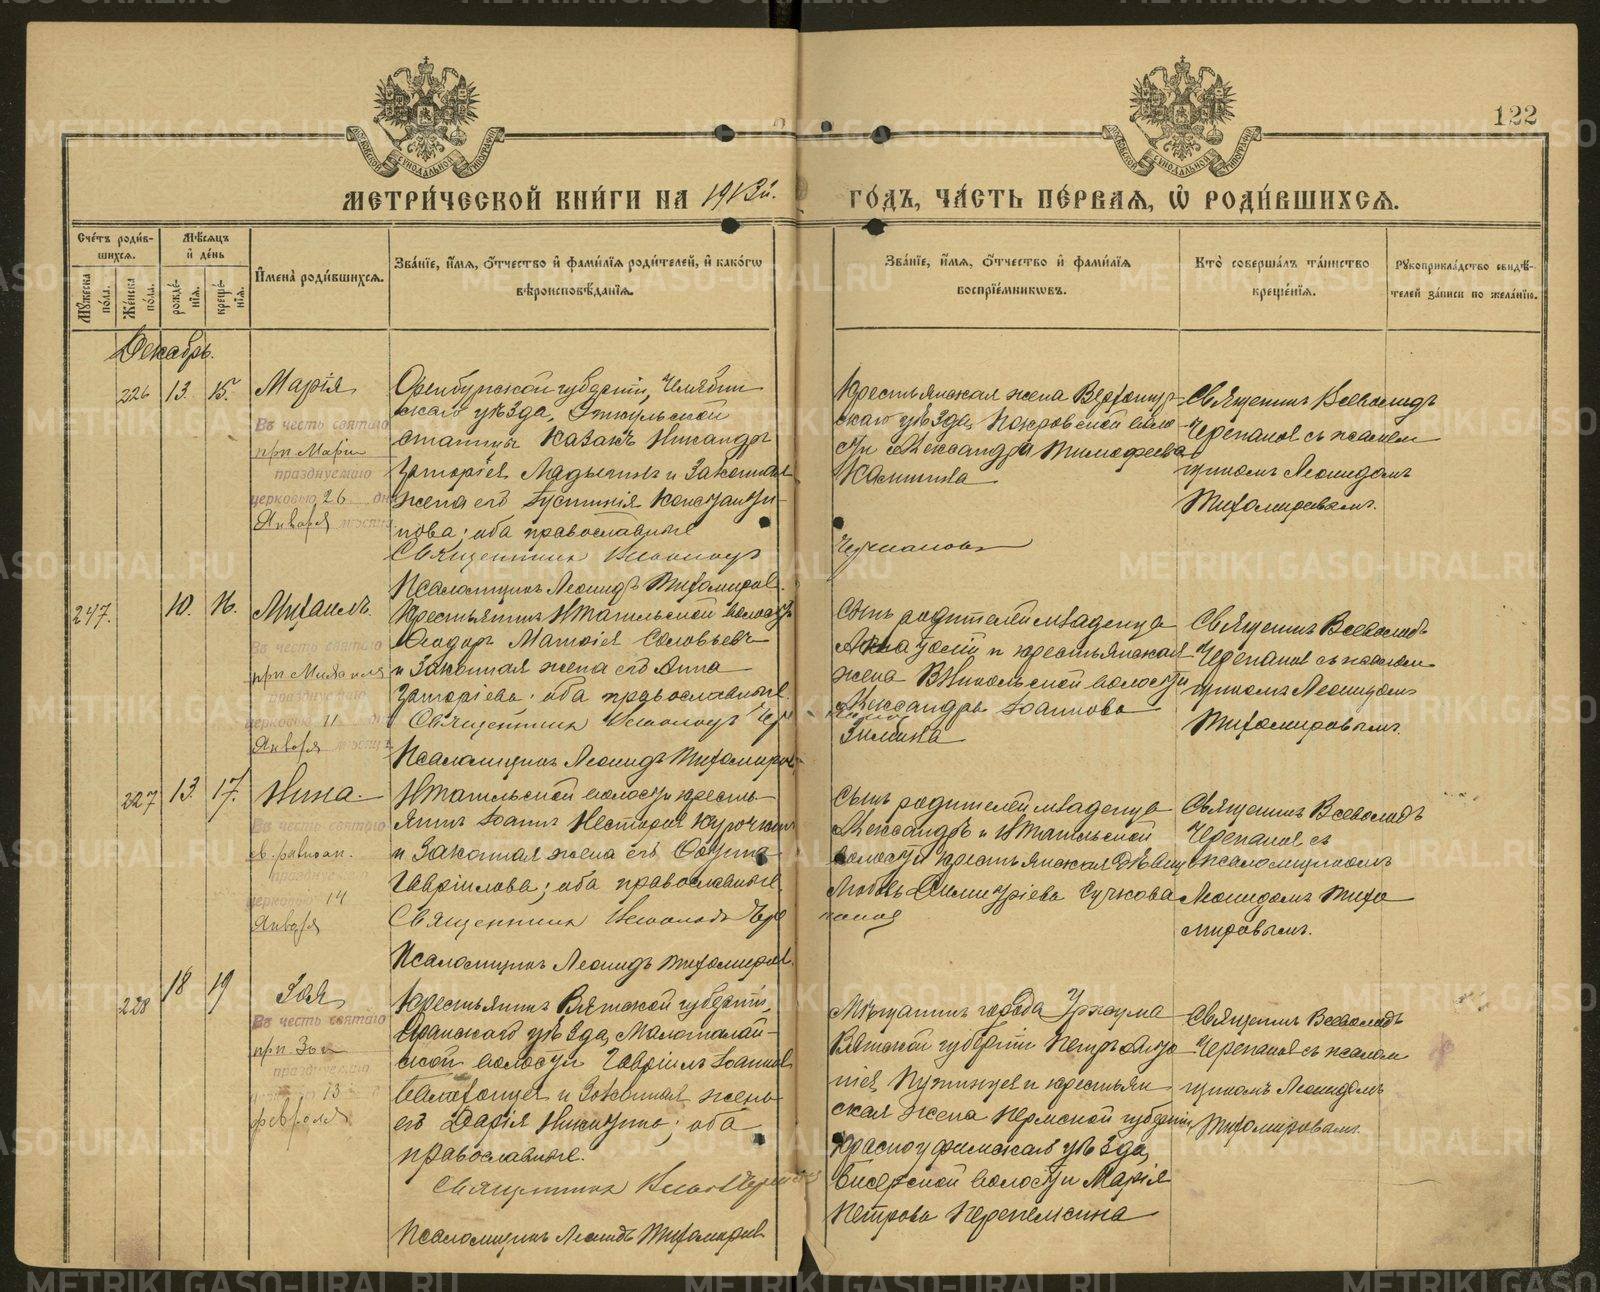 122
МЕТРИ́ЧЕСКОЙ КНИ́ГИ НА 1913й.
ГО́ДЪ, ЧА́СТЬ ПЕ́РВАЯ, Ѡ҆ РОДИ́ВШИХСЯ.
Сче́тъ роди́в-
шихся.
Мꙋ́жеска
по́ла.
Же́нска
по́ла.
Мѣ́сяцъ
и҆ де́нь
рожде́-
нїя.
креще́-
нїя.
И҆мена̀ роди́вшихся.
Зва́нїе, и҆́мя, ѻ҆́тчество и҆ фами́лїя роди́телей, и҆ како́гѡ
вѣроисповѣ́данїя.
Зва́нїе, и҆́мя, ѻ҆́тчество и҆ фами́лїя
воспрїе́мникѡвъ.
Кто̀ соверша́лъ та́инство
креще́нїя.
Рꙋкоприкла́дство свидѣ́-
телей за́писи по жела́нїю.
Декабрь.
226 13. 15. Марія
Въ честь святыю
прп Маріи
празднуемаю
церковью 26 дн
Января мѣсяца
Оренбургской губерніи, Челябин
скаго уѣзда, Еткульской
станицы Казакъ Никандръ
Григоріевъ Ладыгинъ и Законная
жена его Іустинія Константи-
нова; оба православные
Священникъ Всеволодъ
Черпановъ
Псаломщикъ Леонидъ Тихомировъ
Крестьянская жена Верхотур-
скаго уѣзда, Покровской воло
сти Александра Тимофеева
Калинина
Священникъ Всеволодъ
Черепановъ съ псалом
щикомъ Леонидомъ
Тихомировымъ.
247. 10. 16. Михаилъ.
Въ честь святаго
прп Михаила
празднуемаго
церковью 11 дн
Января мѣсяца
Крестьянинъ Н Тагильской волости
Ѳеодоръ Матвіевъ Соловьевъ
и Законная жена его Анна
Григоріева; оба православные
Священникъ Всеволодъ Чер
Псаломщикъ Леонидъ Тихомировъ
Сынъ родителей младенца
и крестьянская
жена В Никольской волости
Александра Іоаннова
Зимина
Священникъ Всеволодъ
Черепановъ съ псалом
щикомъ Леонидомъ
Тихомировымъ.
227 13. 17. Нина.
Въ честь святаго
св. равноап.
празднуемаго
церковью 14
Января
Н Тагильской волости кресть-
янинъ Іоаннъ Несторовъ Курочкинъ
и Законная жена его
Гавріилова; оба православные
Священникъ Всеволодъ Чере
пановъ
Псаломщикъ Леонидъ Тихомировъ.
Сынъ родителей младенца
Александръ и Н Тагильской
волости крестьянская дѣвица
Любовь Димитріева Сучкова
Священникъ Всеволодъ
Черепановъ съ
псаломщикомъ
Леонидомъ Тихо
мировымъ.
228 18 19 Зоя
Въ честь святаго
прп Зои
празднуемаго
13
февраля
Крестьянинъ Вятской губерніи,
Яранскаго уѣзда,
ской волости Гавріилъ Іоанновъ
и Законная жена
его Дарія Никитина; оба
православные.
Священникъ Всевол Черепановъ
Псаломщикъ Леонидъ Тихомировъ
Мѣщанинъ города Уржума
Вятской губерніи Петръ
Пужинцевъ и крестьян
ская жена Пермской губерніи,
Красноуфимскаго уѣзда,
Бисерской волости Марія
Петрова Перепелкина
Священникъ Всеволодъ
Черепановъ съ псалом
щикомъ Леонидомъ
Тихомировымъ.
METRIKI.GASO-URAL.RU